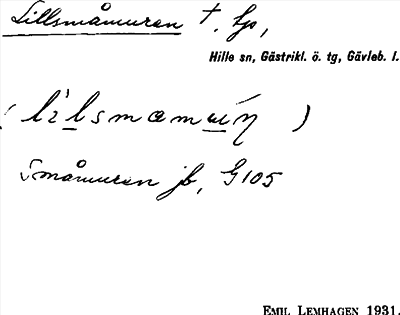 Lillsmåmuren †, tp,
Hille sn, Gästrikl. ö. tg, Gävleb. l.
Småmuren jb, G105
EMIL LEMHAGEN 1931.